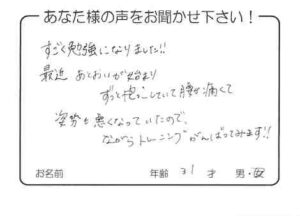 あなた様の声をお聞かせ下さい！
すごく勉強になりました!!
最近 あとおいが始まり
ずっと抱っこしていて腰が痛くて
姿勢も悪くなっていたので、
ながらトレーニングがんばってみます!!
お名前 年齢 31 才 男・女